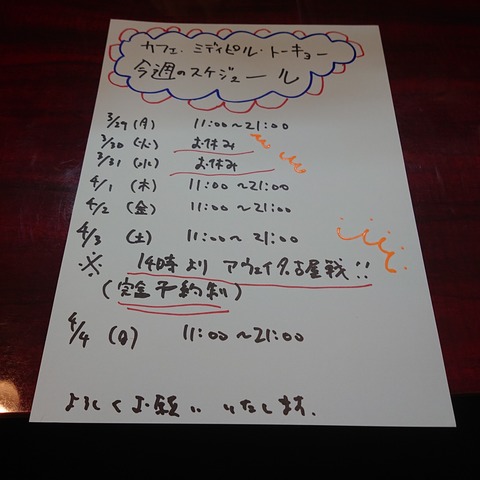 カフェ・ミディピル・トーキョー
今週のスケジュール
3/29(月) 11:00~21:00
3/30(火) お休み
3/31(水) お休み
4/1(木) 11:00~21:00
4/2(金) 11:00~21:00
4/3(土) 11:00~21:00
※ 14時より アウェイ名古屋戦!!
(完全予約制)
4/4(日) 11:00~21:00
よろしくお願いいたします.